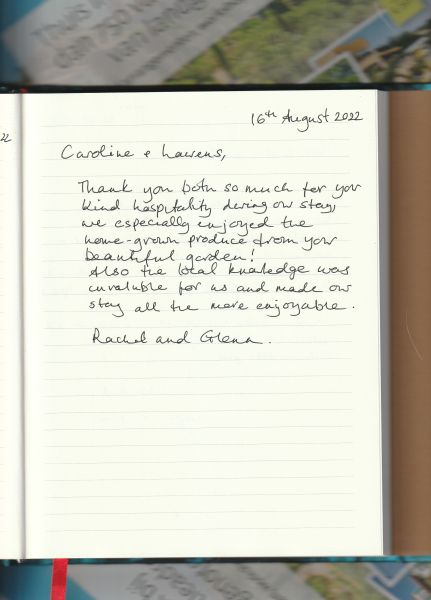 Thuis
dan 750
van
22
16th August 2022
Caroline + Laurens,
Thank you both so much for your
kind hospitality during our stay,
we especially enjoyed the
home-grown produce from your
beautiful garden!
Also the local knowledge was
invaluble for us and made our
stay all the more enjoyable.
Rachel and Glenn.